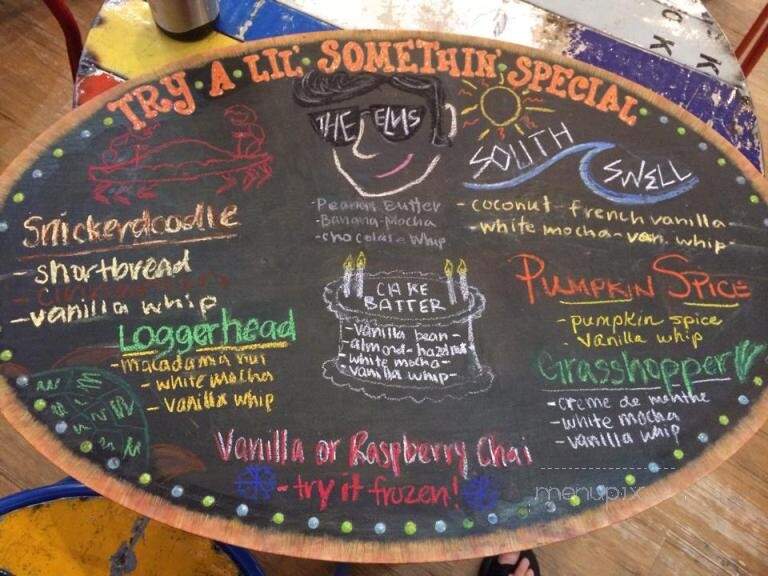 TRY · A · LIL' SOMETHIN' SPECIAL
THE ELVIS
-Peanut Butter
-Banana-Mocha
-chocolate whip
SOUTH
SWELL
- coconut - french vanilla -
- white mocha - van. whip -
Snickerdoodle
- shortbread
- vanilla whip
Loggerhead
- macadamia nut
- white mocha
- vanilla whip
CAKE
BATTER
- vanilla bean -
almond - hazelnut -
- white mocha -
vanilla whip -
PUMPKIN SPICE
- pumpkin spice
- vanilla whip
Grasshopper
- creme de menthe
- white mocha
- vanilla whip
Vanilla or Raspberry Chai
- try it frozen!
menupix